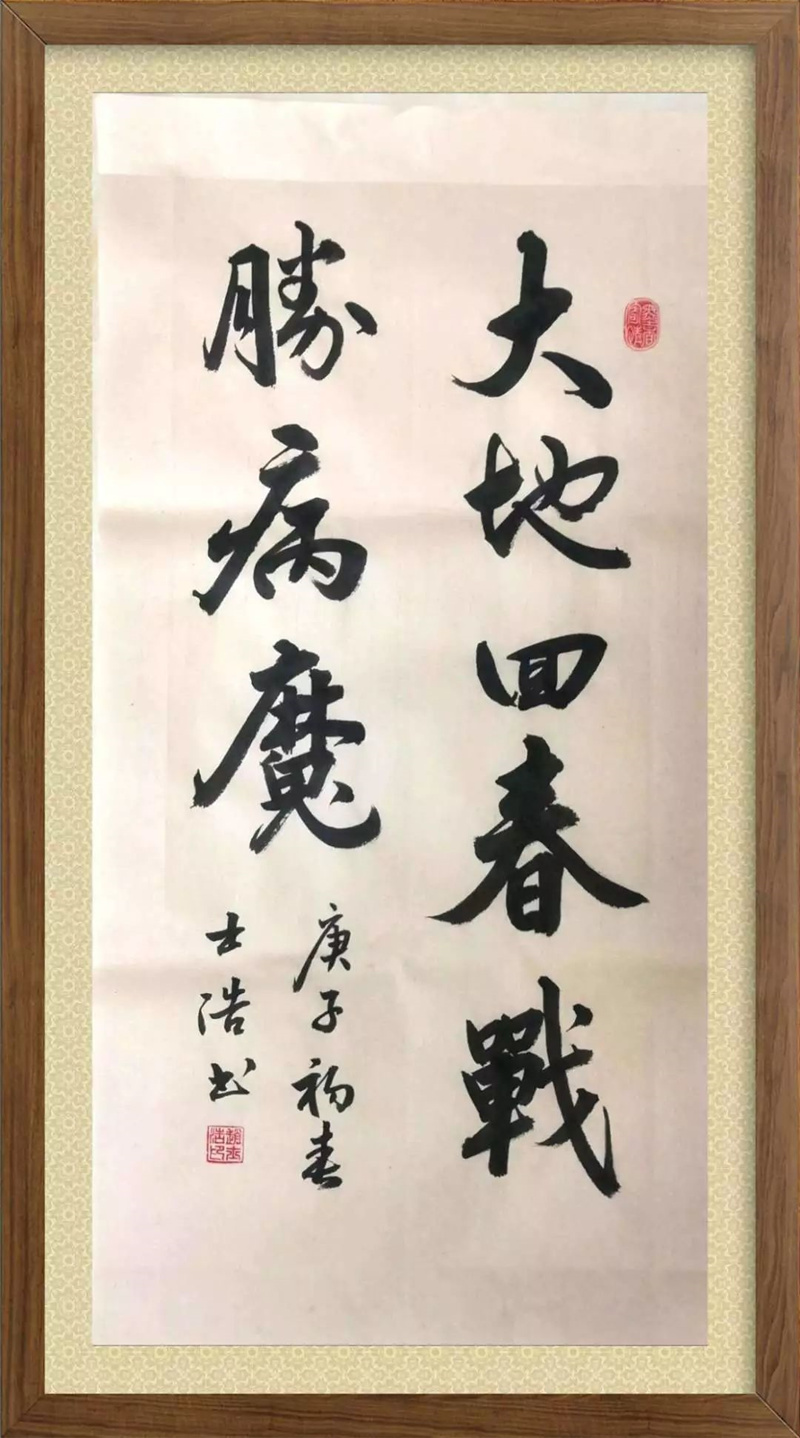 大地回春戰
勝病魔
庚子初春
士浩书